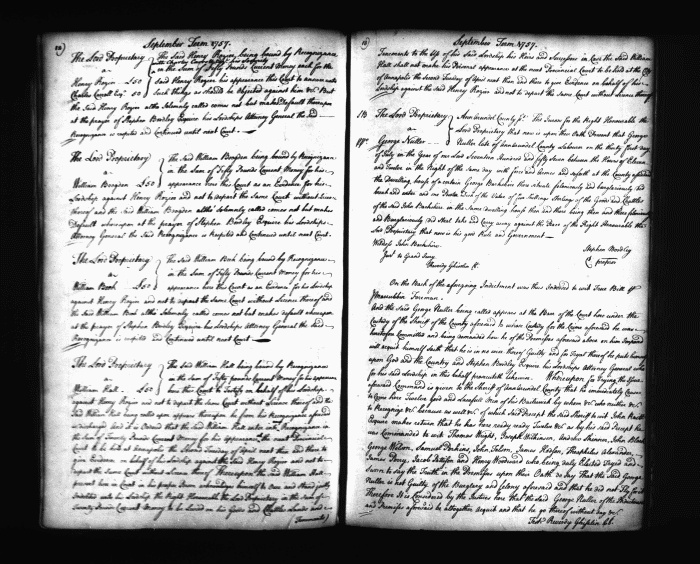 September Term 1757.
The Lord Proprietary The Said Henry Rogien being bound by Recognizance
in the Sum of Fifty Pounds Current Money each for the
Henry Rogien £50 Said Henry Rogien his appearance this Court to answer unto
Charles Carroll Esqr 50 Such things as should be Objected against him &c But
the Said Henry Rogien altho Solemnly called comes not but makes Default thereupon
at the prayer of Stephen Bordley Esquire his Lordships Attorney General the Said
Recognizance is respited and Continued until next Court.
The Lord Proprietary The Said William Brogden being bound by Recognizance
in the Sum of Fifty Pounds Current Money for his
William Brogden £50 appearance here this Court as an Evidence for his
Lordship against Henry Rogien and not to depart the same Court without licence
thereof and the said William Brogden altho Solemnly called comes not but makes
Default whereupon at the prayer of Stephen Bordley Esquire his Lordships
Attorney General the Said Recognizance is Respited and Continued until next Court.
The Lord Proprietary The Said William Book being bound by Recognizance
in the Sum of Fifty Pounds Current Money for his
William Book £50 appearance here this Court as an Evidence for his Lordship
against Henry Rogien and not to depart the same Court without Licence thereof and
the said William Book altho Solemnly called comes not but makes default whereupon
at the prayer of Stephen Bordley Esquire his Lordships Attorney General the Said
Recognizance is respited and Continued until next Court
The Lord Proprietary The Said William Hall being bound by Recognizance
in the Sum of Fifty pounds Current Money for his appearance
William Hall £50 here this Court to Testify on behalf of his Lordship
against Henry Rogien and not to depart the same Court without Licence thereof and the
Said William Hall being called upon appears thereupon he from his Recognizance aforesaid
is discharged and it is Ordered that the said William Hall enter into Recognizance in
the Sum of Twenty Pounds Current Money for his appearance at the next Provincial
Court to be held at Annapolis the Second Tuesday of April next and then and there to
give Evidence on behalf of his Lordship against the said Henry Rogien and not to
depart the Same Court without Licence thereof Whereupon the said William Hall
present here in Court in his proper Person acknowledges himself to Owe and stand justly
indebted unto his Lordship the Right Honourable the Lord Proprietary in the Sum of
Twenty Pounds Current Money to be levied on his Goods and Chattles Lands and
(Tenements)
September Term 1757.
Tenements to the Use of his Said Lordship his Heirs and Successors in Case the Said William
Hall shall not make his Personal appearance at the next Provincial Court to be held at the City
of Annapolis the Second Tuesday of April next then and there to give Evidence on behalf of his
Lordship against the said Henry Rogien and not to depart the Same Court without Licence thereof
The Lord Proprietary Annarundel County Ss. The Jurors for the Right Honourable the
Lord Proprietary that now is upon their Oath Present that George
George Nutler Nutler late of Annarundel County Labourer on the thirty first day
of July in the Year of our Lord Seventeen Hundred and fifty Seven between the Hours of Eleven
and Twelve in the Night of the Same day with force and Arms and aforesaid at the County aforesaid
the Dwelling house of a certain George Barkshire there situate feloniously and burglariously did
break and enter and one Pewter Dish of the Value of five Shillings Sterling of the Goods and Chattles
of the said John Barkshire in the Same dwelling house then and there being then and there feloniously
and Burglariously did Steal take and Carry away against the Peace of the Right Honourable the
Lord Proprietary that now is his good Rule and Government
Witness John Barkshire Stephen Bordley
Jurd to Grand Jury prosper
Reverdy Ghiselin Cl.
On the Back of the aforegoing Indictment was thus Indorsed to wit True Bill
Foreman.
And the Said George Nutler being called appears at the Barr of the Court here under the
Custody of the Sheriff of the County aforesaid to whose Custody for the Crime aforesaid he was
heretofore Committed and being demanded how he of the Premisses aforesaid above on him Imposed
will acquit himself saith that he is in no wise thereof Guilty and for Tryal thereof he puts himself
upon God and the Country and Stephen Bordley Esquire his Lordships Attorney General who
for his said Lordship in this behalf prosecuteth likewise. Whereupon for Trying the Issue
aforesaid Command is given to the Sheriff of Annarundel County that he immediately Cause
to Come here Twelve Good and Lawful Men of his Bailiwick by whom &c who neither &c
to Recognize &c because as well &c of which Said Precept the said Sheriff to wit John
Esquire makes return that he has here ready Twelve &c as by his said Precept he
was Commanded to wit Thomas Wright, Joseph Wilkinson, John Black
George Wilson, Samuel Perkins, John Falcon, James Hosier, Theophilus Alexander,
James Perry, Jacob and Henry Woodward who being duly Elected Tryed and
Sworn to say the Truth in the Premisses upon their Oath do Say That the Said George
Nutler is not Guilty of the Burglary and Felony aforesaid and that he did not Fly for it
Therefore It is Considered by the Justices here that the said George Nutler of the Indictment
and Premisses aforesaid be altogether acquit and that he go thereof without day &c
Test Reverdy Ghiselin Cl.